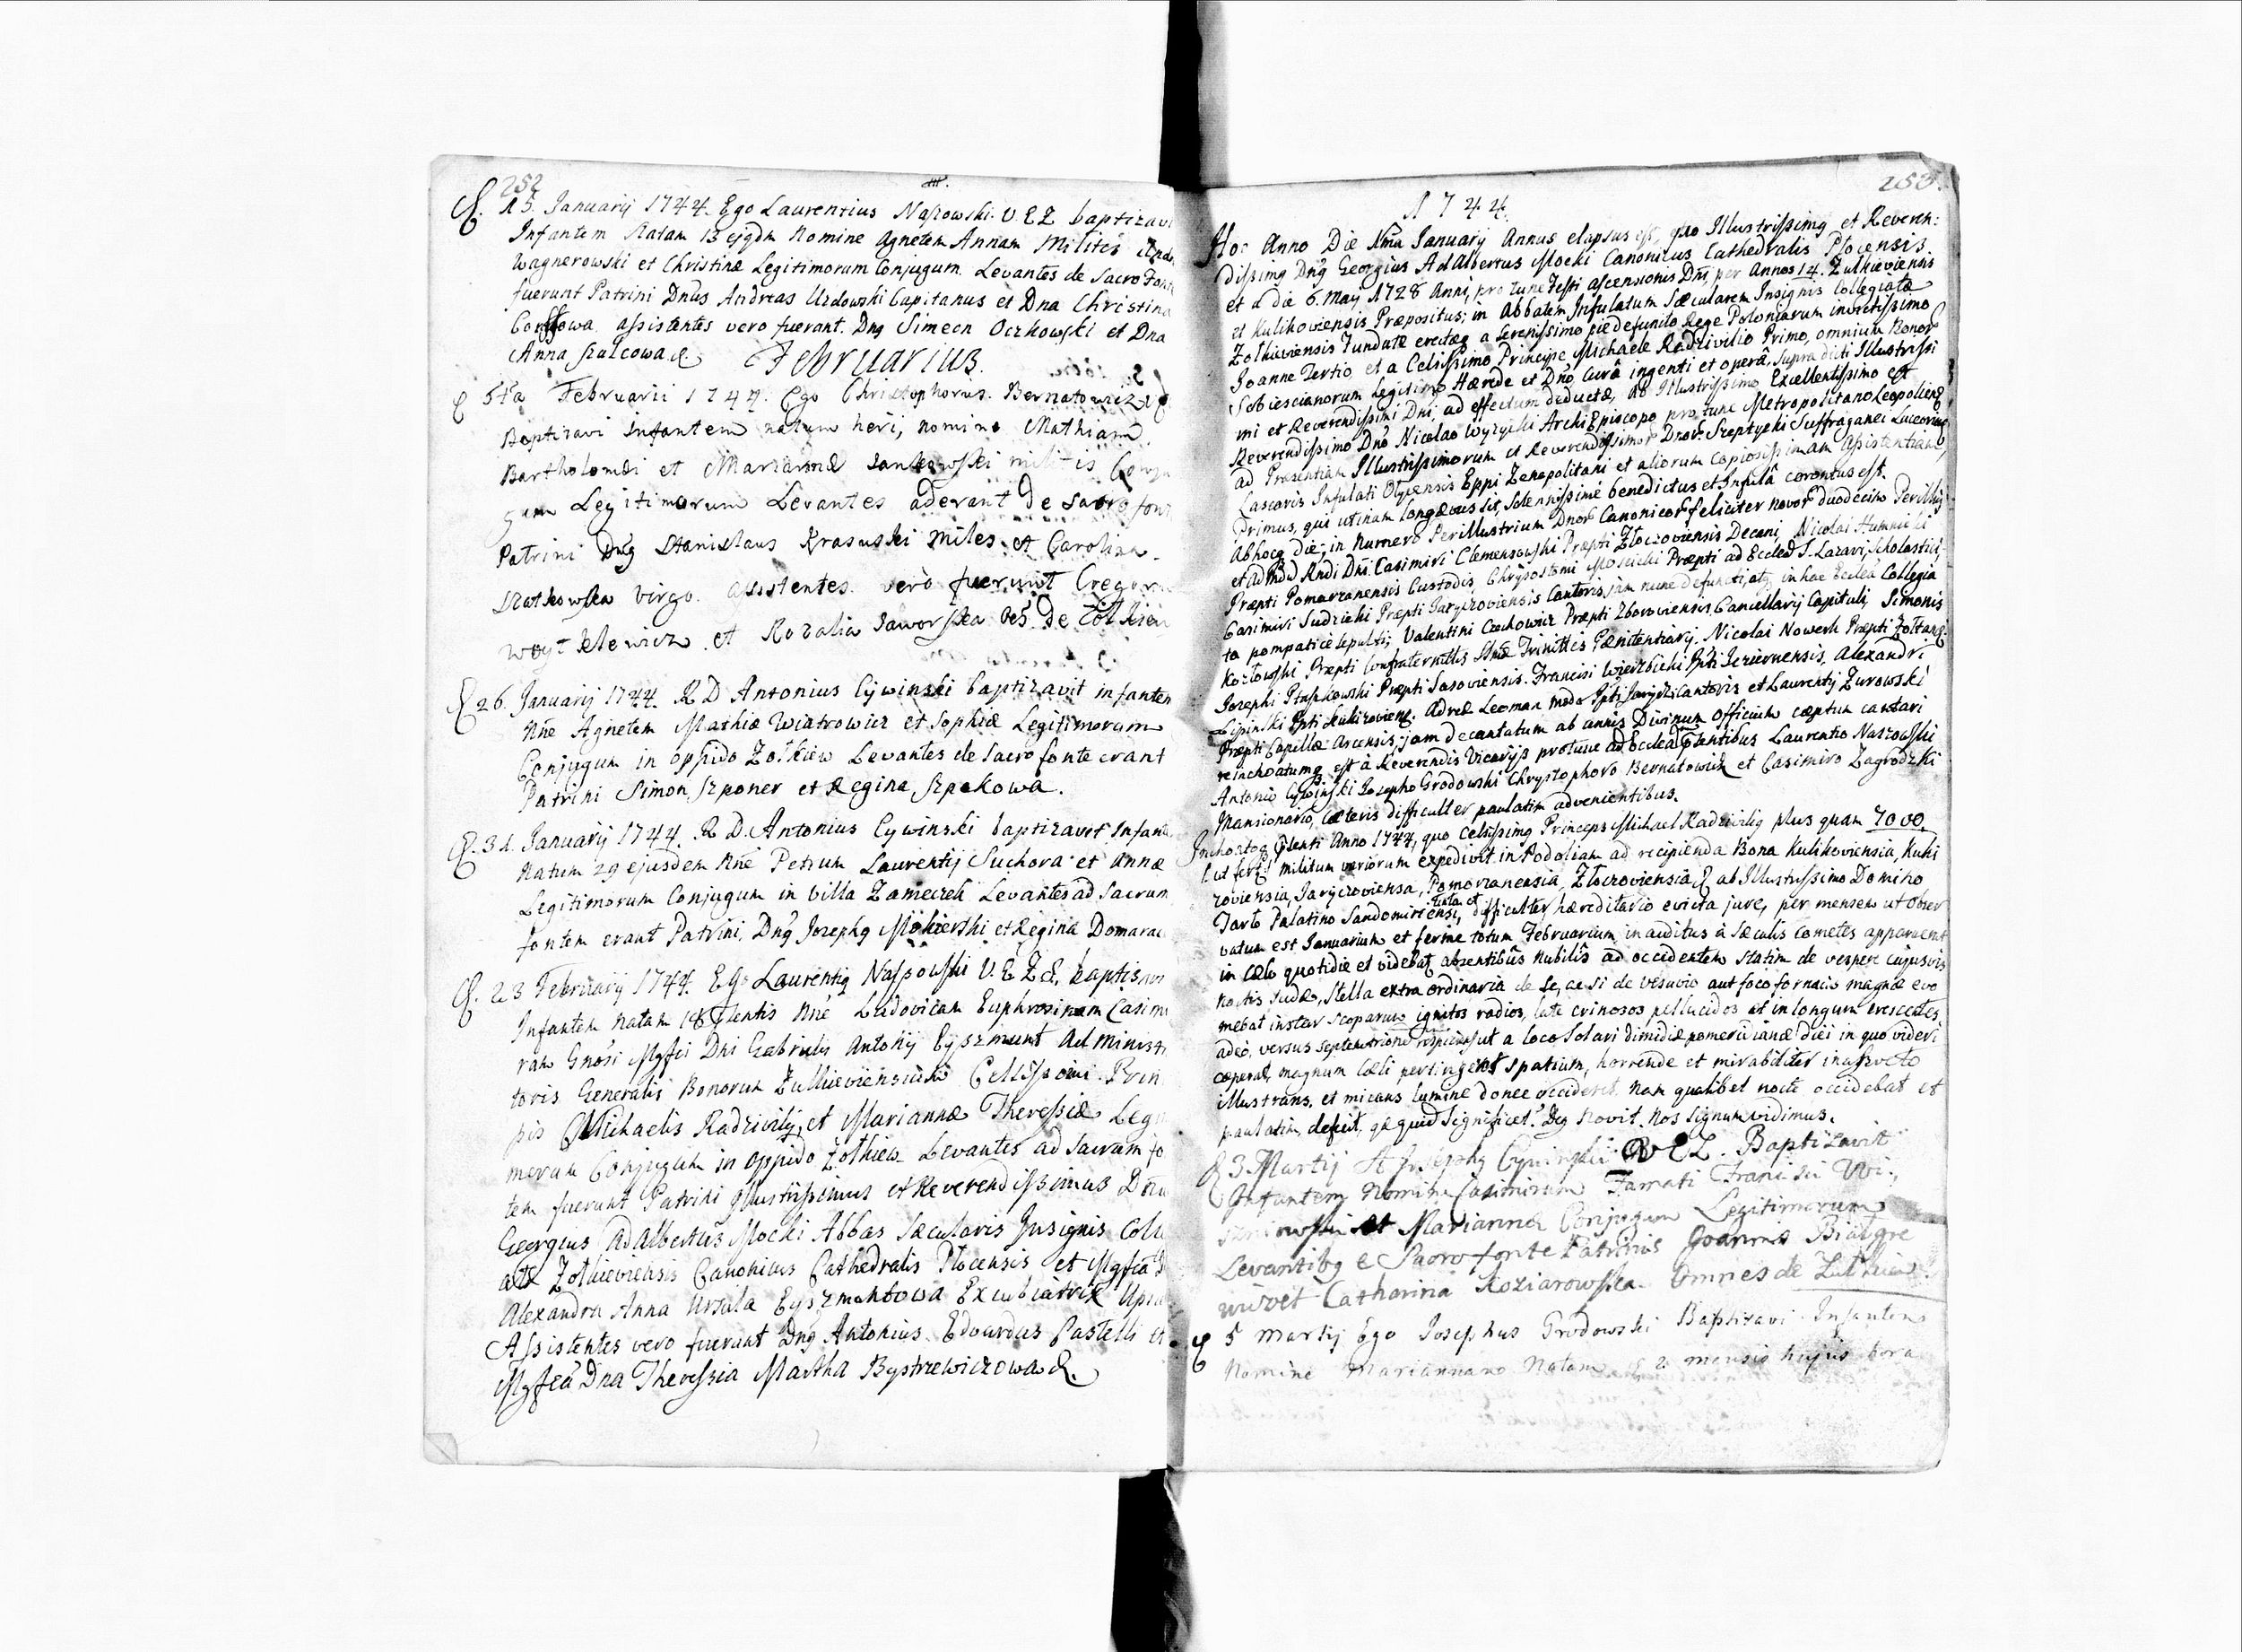 252
15. Januarij 1744. Ego Laurentius Naszowski. V. E Z baptizavi
Infantem Natam 13 ejqdm Nomine Agnetem Annam Militis
Wagnerowski et Christinæ Legitimorum Conjugum. Levantes de Sacro Fonte
fuerunt Patrini Dnus Andreas Urdowski Capitanus et Dna Christina
assistentes vero fuerant. Dnq Simeon Oczkowski et Dna
Anna Szulcowa.
Februarius.
5ta Februarii 1744. Ego Christophorus. Bernatowicz
Baptizavi Infantem natum heri, nomine Mathiam
Bartholomæi et Mariannæ Jankowski militis Conju
gum Legitimorum Levantes aderant de Sacro font
Patrini Dnq Stanislaus Krasuski Miles et Carolina
Szotkowska virgo. assistentes vero fuerunt Gregori
Woytkiewicz et Rozalia Jaworska oēs De Zolkiew
26. Januarij 1744. R D Antonius Cywinski baptizavit infantem
Nnē Agnetem Mathiæ Wiatrowicz et Sophiæ Legitimorum
Conjugum in oppido Zołkiew Levantes de Sacro fonte erant
Patrini Simon Szponer et Regina Szpakowa.
31. Januarij 1744. R D. Antonius Cywinski baptizavit Infante
Natum 29 ejusdem Nnē Petrum Laurentij Suchora et Annæ
Legitimorum Conjugum in Villa Zameczek Levantes ad Sacrum
fontem erant Patrini, Dnq Josephq Mokierski et Regina Domarac
23 Februarij 1744. Ego Laurentiq Naszowski V. E Z. baptisavi
Infantem Natam 18 Nnē Ludovicam Euphrosinam Casimi
ram Gnosi Mgfci Dni Gabrielis Antonij Eyszmunt Administra
toris Generalis Bonorum Zulkieviensium Celsissimi Prin
pis Michaelis Radzivilij, et Mariannæ Theressiæ Legi
morum Conjugum in oppido Zołkiew Levantes ad Sacrum fo
tem fuerunt Patrini Illustrissimus et Reverendissimus Dnu
Georgius Adalbertus Mocki Abbas Sæcularis Insignis Colle
atæ Zolkieviensis Canonicus Cathedralis Plocensis et Mgfca D
Alexandra Anna Ursula Eyszmontowa Excubiatrix Upit
Assistentes vero fuerant Dnq Antonius Edvardus Pastelli et
Mgfca Dna Theressia Martha Bystrzewiczowa
1744.
Hoc Anno Die Januarij Annus elapsus est, quo Illustrissimq et Reveren:
dissimq Dnq Georgius Adalbertus Mocki Canonicus Cathedralis Plocensis
et a die 6. May 1728 Anni, pro tunc Festi ascensionis Dni, per Annos 14. Zulkieviensis
et Kulikoviensis Præpositus; in Abbatem Infulatum Sæcularem Insignis Collegiatæ
Zolkieviensis Fundatæ erectæq a Serenissimo pie defuncto Rege Poloniarum invictissimo
Joanne Tertio, et a Celsissimo Principe Michaele Radzivilio Primo, omnium Bonor
Sobiescianorum Legitimo Hærede et Dno, Cura ingenti et opera, Supra dicti Illustrissi
mi et Reverendissimi Dni, ad effectum deductæ, Ab Illustrissimo Excellentissimo et
Reverendissimo Dno Nicolao Wyzycki Archi Episcopo pro tunc Metropolitano Leopoliens
ad Præsentiam Illustrissimorum et Reverendissimor Dnor. Szeptycki Suffraganei Luceorien
Lascaris Infulati Olycensis Eppi Zenopolitani et aliorum Copiosissimam assistentiam
Primus, qui utinam longævus sit, Solennissime benedictus et Infula coronatus est.
Abhocq die, in Numero Perillustrium Dnor Canonicor feliciter novor duodecim Perillus
et Rndi Dni Casimiri Clemensowski Præpti Zloczoviensis Decani, Nicolai Humnicki
Præpti Pomorzanensis Custodis, Chrysostomi Præpti ad Eccleã S. Lazari, Scholastici,
Casimiri Sudzicki Præpti Jaryczoviensis Cantoris, jam nunc defuncti, atq in hac Ecclea Collegia
ta pompaticè Sepulti, Valentini Czechowicz Præpti Zboroviensis Cancellarij Capituli, Simonis
Kozłowski Præpti Confraternitis SSmæ Trinittis Pænitentiarij, Nicolai Nowerk Præpti
Josephi Præpti Sasoviensis. Francisci Wierzbicki Ppti Jeziernensis, Alexandri
Lipinski Ppti Andreæ Leoman modo Ppti Cantoris et Laurentij Zurowski
Præpti Capellæ Arcensis, jam decantatum ab annis Divinum Officium cæptum cantari
reinchoatumq est à Reverendis Vicarijs pro tunc ad Eccleã Laurentio Naszowski
Antonio Cywinski Josepho Grodowski Chrystophoro Bernatowicz et Casimiro Zagrodzki
Mansionario, Cæteris difficulter paulatim advenientibus.
Anno 1744, quo Celsissimq Princeps Michael Radzivilq plus quam 7000
militum variorum expedivit in Podoliam ad recipienda Bona Kulikoviensia, Kuki
zoviensia, Jaryczoviensa, Pomorzanensia, Zloczoviensia, ab Illustrissimo Domino
Tarło Palatino Sandomiriensi, difficulter hæreditario evicta jure, per mensem ut obser
vatum est Januarium et ferme totum Februarium, inauditus à Sæculis Cometes apparuerit
in Cælo quotidie et videbat absentibus Nubilis ad occidentem statim de vespere cujusvis
Noctis Sudæ, Stella extra ordinaria de se, ac si de Vesuvio aut foco fornacis magnæ evo
mebat instar Scoparum ignitos radios, late crinosos pellucidos et in longum crescentes
adeò, versus Septemtrione ut a loco Solari dimidiæ pomeridianæ diei in quo videri
cæperat, magnum Cæli pertingeret Spatium, horrende et mirabiliter inassveto
illustrans, et micans lumine donec occideret. Nam qualibet nocte occidebat et
paulatim deficit, quid Significet? Dsq Novit. Nos Signum vidimus.
3. Martij Josephq Cywinski V E Z. Baptizavit
Infantem Nomine Casimirum Famati Francisci Wi
et Mariannæ Conjugum Legitimorum
Levantibq e Sacro fonte Patrinis Joannis
Catharina Koziarowska. Omnes de
5 Martij Ego Josephus Grodowski Baptizavi Infantem
Nomine Mariannam Natam 2 mensis hujus hora